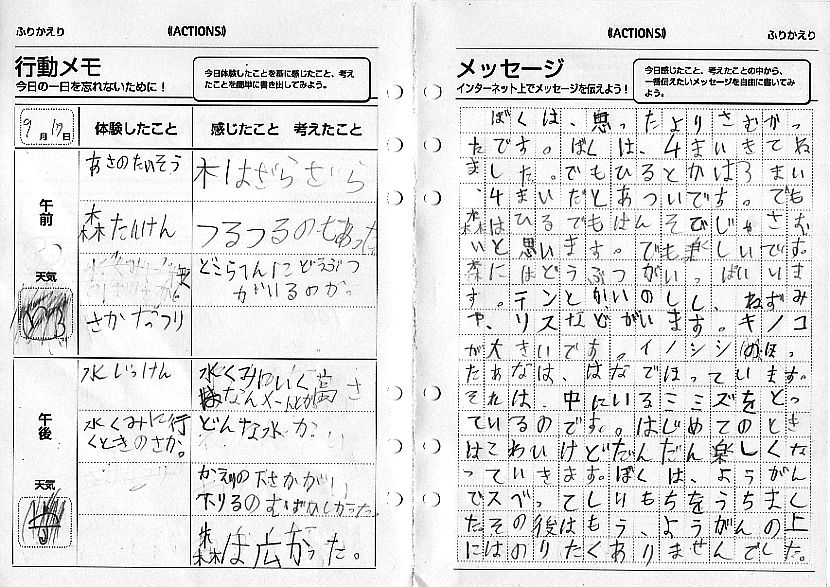 ふりかえり 《ACTIONS》
行動メモ
今日の一日を忘れないために！
今日体験したことを基に感じたこと、考え
たことを簡単に書き出してみよう。
9月17日 体験したこと 感じたこと 考えたこと
午前
天気
あさのたいそう
木はざらざら
森たんけん
つるつるのもあった
どこらへんにどうぶつ
がいるのか。
さかだつり
午後
天気
水じっけん
水くみにいく高さ
水くみに行
くときのさか。
どんな水か
かえりの下さかがい
下りるの むずかしかった
森は広かった。
《ACTIONS》 ふりかえり
メッセージ
インターネット上でメッセージを伝えよう！
今日感じたこと、考えたことの中から、
一番伝えたいメッセージを自由に書いてみ
よう。
ぼくは、思ったよりさむかっ
たです。ばくは、4まいきてね
ました。でもひるとかは3まい
、4まいだとあついです。でも
森はひるでもはんそでじゃさむ
いと思います。でも楽しいです。
森にはどうぶつがいっぱいいま
す。テンとかいのしし、ねずみ
や、リスなどがいます。キノコ
が大きいです。イノシシのほっ
たあなは、はなでほっています。
それは、中にいるミミズをとっ
ているのです。はじめてのとき
はこわいけどだんだん楽しくな
っていきます。ぼくは、ようがん
でスベってしりもちをうちまし
たその後はもう、ようがんの上
にはのりたくありませんでした。